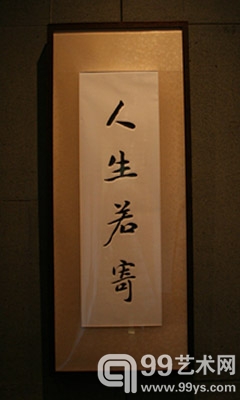 人生若寄
99艺术网
www.99ys.com